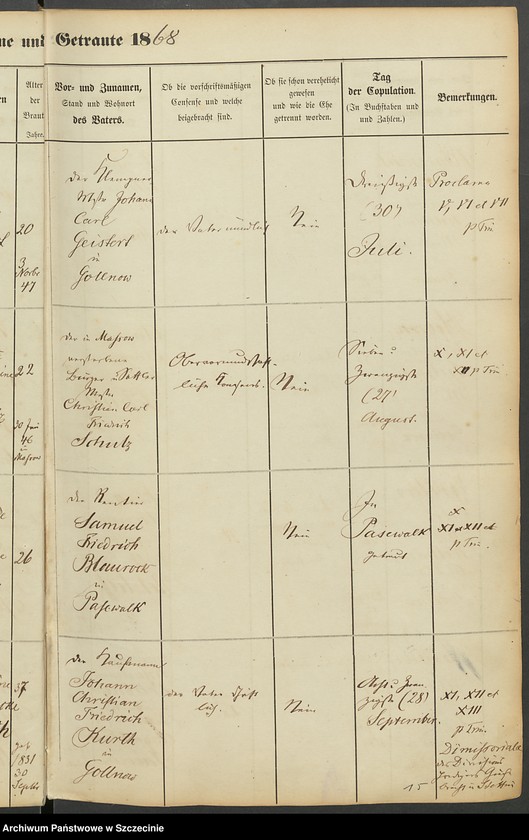 ne und Getraute 1868
Alter
der
Braut
Jahre.
Vor- und Zunamen,
Stand und Wohnort
des Vaters.
Ob die vorschriftsmäßigen
Consense und welche
beigebracht sind.
Ob sie schon verehelicht
gewesen
und wie die Ehe
getrennt worden.
Tag
der Copulation.
(In Buchstaben und
und Zahlen.)
Bemerkungen.
20
3
Novbr
47
Der Klempner
Mstr. Johann
Carl
Geistert
in
Gollnow
der Vater mündlich
Nein
Dreißigste
(30)
Juli.
Proclama
p Trin
22
46
Massow
Der in Massow
verstorbene
Bürger u Sattler
Mstr.
Christian Carl
Friedrich
Schulz
Obervormundschaft-
licher Consens.
Nein
Sieben u
Zwanzigste
(27)
August.
X, XI et
XII p Trin
26
Der Rentier
Samuel
Friedrich
Blaurock
in
Pasewalk
Nein
In
Pasewalk
getraut
X
XI et XII et
p Trin.
37
geb
1831
30
Septbr
Der Kaufmann
Johann
Christian
Friedrich
Kurth
in
Gollnow
der Vater schrift
lich.
Nein
Acht u Zwan
zigste (28)
September.
XI, XII et
XIII
p Trin.
Dimissoriale
15
Archiwum Państwowe w Szczecinie